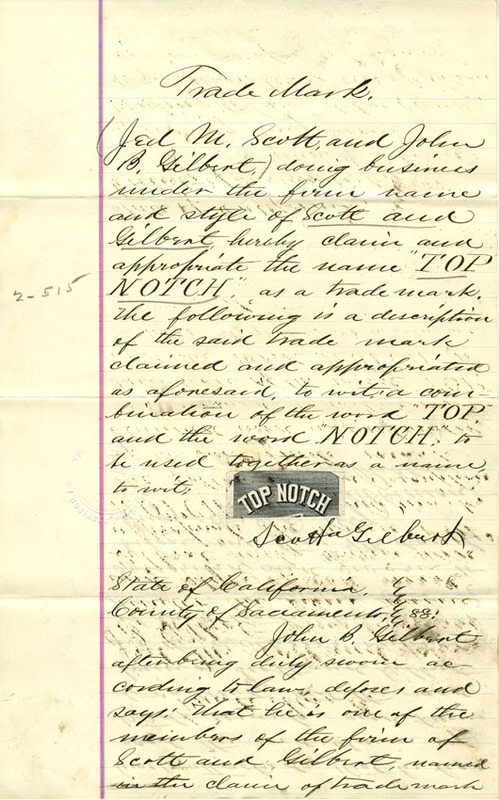 Trade Mark.
(Jed M. Scott, and John
B. Gilbert,) doing business
under the firm name
and style of Scott and
Gilbert, hereby claim and
appropriate the name "TOP
NOTCH", as a trade mark.
2-515
The following is a description
of the said trade mark
claimed and appropriated
as aforesaid, to wit; a com-
bination of the word "TOP"
and the word "NOTCH" to
be used together as a name,
to wit;
TOP NOTCH
Scott & Gilbert
State of California,
County of Sacramento, ss.
John B. Gilbert,
after being duly sworn ac-
cording to law, deposes and
says: That he is one of the
members of the firm of
Scott and Gilbert, named
in the claim of trade mark